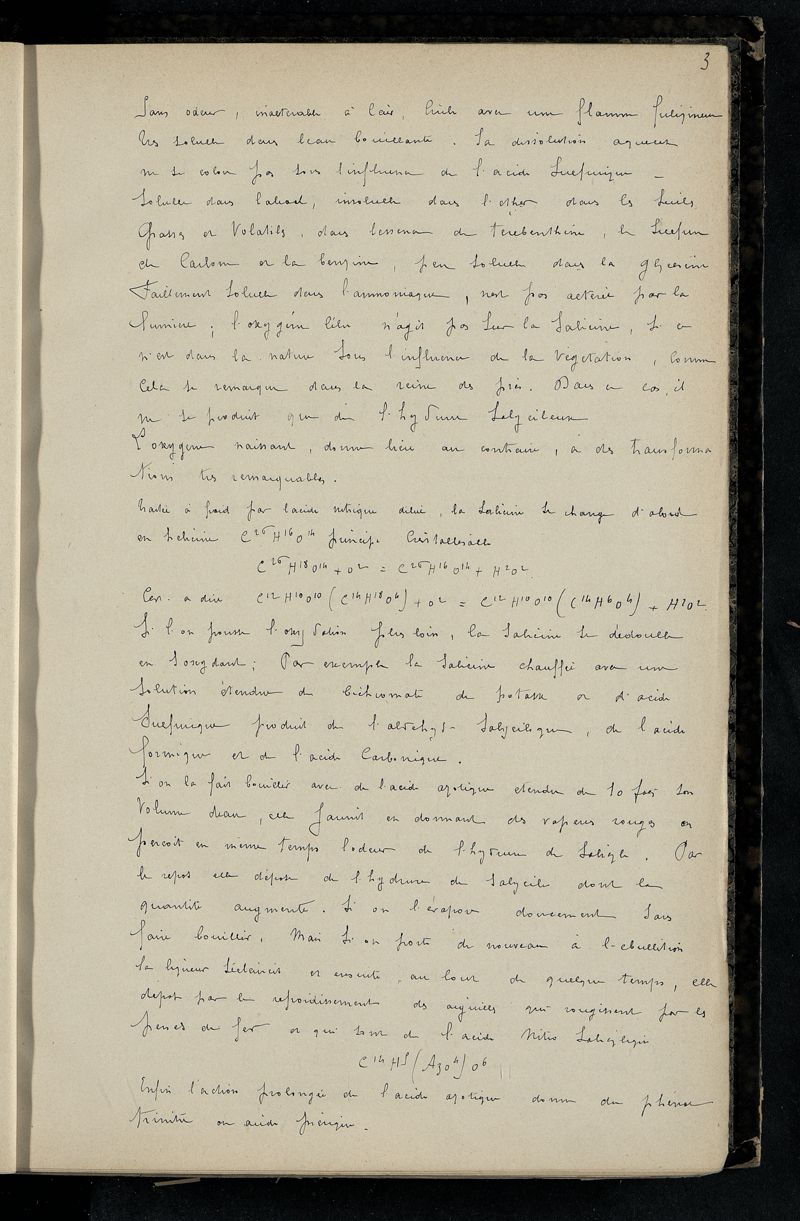 3
Sans odeur, inaltérable à l'air, brûle avec une flamme fuligineuse
très soluble dans l'eau bouillante. Sa dissolution aqueuse
ne se colore pas sous l'influence de l'acide Sulfurique –
Soluble dans l'alcool, insoluble dans l'éther dans les huiles
Grasses et Volatils, dans l'essence de térébenthine, le Sulfure
de Carbone et la benzine, peu soluble dans la glycérine
Faiblement soluble dans l'ammoniaque, n'est pas altérée par la
lumière ; l'oxygène libre n'agit pas sur la Salicine, si ce
n'est dans la nature sous l'influence de la végétation, comme
cela se remarque dans la reine des prés. Dans ce cas, il
ne se produit que de l'hydrure Salycileux
L'oxygène naissant, donne lieu au contraire, à des transforma
tions très remarquables.
traitée à froid par l'acide nitrique dilué, la Salicine se change d'abord
en hélicine C26H16O14 principe Cristallisable
C26H18O14 + O2 = C26H16O14 + H2O2
C'est à dire C12H10O10 (C14H18O4) + O2 = C12H10O10 (C14H6O4) + H2O2.
Si l'on pousse l'oxydation plus loin, la Salicine se dédouble
en s'oxydant ; Par exemple la Salicine chauffée avec une
solution étendue de bichromate de potasse et d'acide
Sulfurique produit de l'aldéhyde Salycilique, de l'acide
formique et de l'acide Carbonique.
Si on la fait bouillir avec de l'acide azotique étendu de 10 fois son
Volume d'eau, elle jaunit en donnant des vapeurs rouges on
perçoit en même temps l'odeur de l'hydrure de Salicyle. Par
le repos elle dépose de l'hydrure de Salycile dont la
quantité augmente. Si on l'évapore doucement sans
faire bouillir. Mais si on porte de nouveau à l'ébullition
la liqueur s'éclaircit et ensuite, au bout de quelque temps, elle
dépose par le refroidissement des aiguilles qui rougissent par les
persels de fer et qui sont de l'acide Nitro Salicylique
C14H5(AzO4)O6
Enfin l'action prolongée de l'acide azotique donne du phénol
trinitré ou acide picrique.